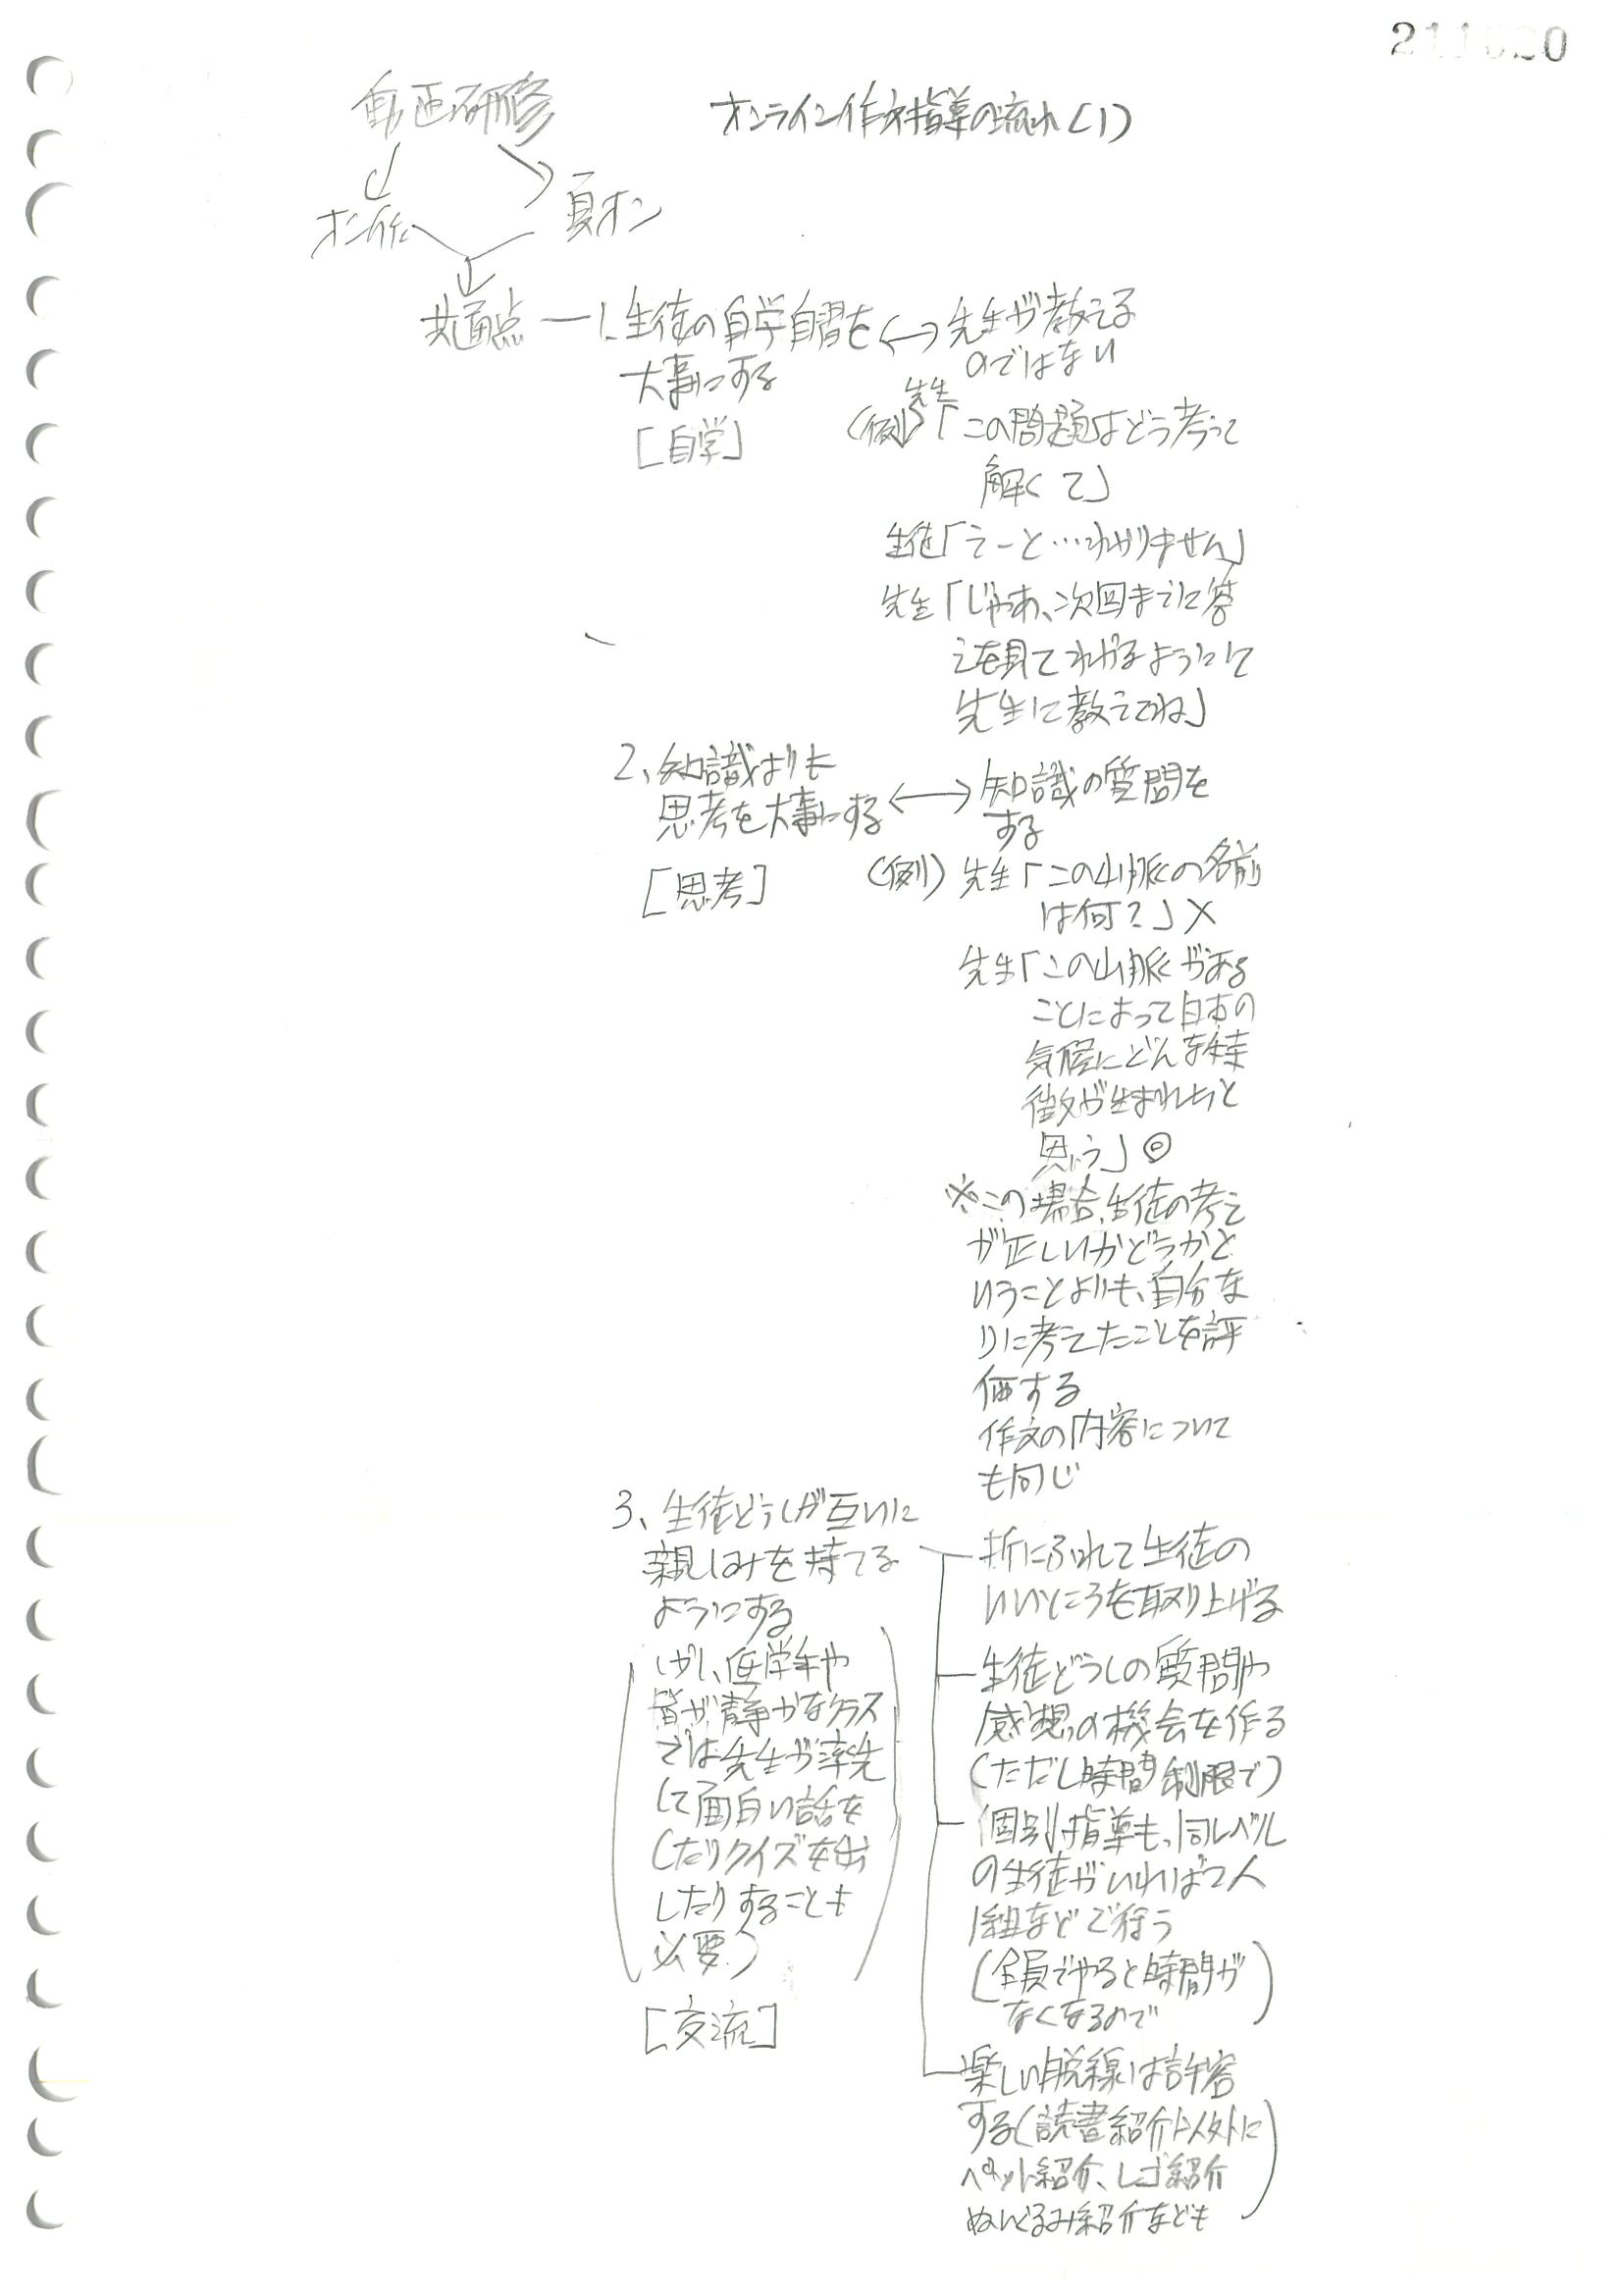 動画研修
オンライン作文指導の流れ(1)
夏オン
共通点 ー 1、生徒の自学自習を
大事にする
[自学]
↔ 先生が教える
のではない
(例) 先生「この問題はどう考って
解くて」
生徒「えーと…わかりません」
先生「じゃあ、次回までに答
えを見てわかるようにして
先生に教えてね」
2、知識よりも
思考を大事にする
[思考]
↔ 知識の質問を
する
(例) 先生「この山脈の名前
は何?」×
先生「この山脈がある
ことによって日本の
気候にどんな特
徴が生まれたと
思う」◎
※この場合、生徒の考え
が正しいかどうかと
いうことよりも、自分な
りに考えたことを評
価する
作文の内容について
も同じ
3、生徒どうしが互いに
親しみを持てる
ようにする
(しかし、低学年や
皆が静かなクラス
では先生が率先
して面白い話を
したりクイズを出
したりすることも
必要)
[交流]
折にふれて生徒の
いいところを取り上げる
生徒どうしの質問や
感想の機会を作る
(ただし時間制限で)
個別指導も、同レベル
の生徒がいれば2人
1組などで行う
(全員でやると時間が
なくなるので)
楽しい脱線は許容
する(読書紹介以外に
ペット紹介、レゴ紹介
ぬいぐるみ紹介なども)